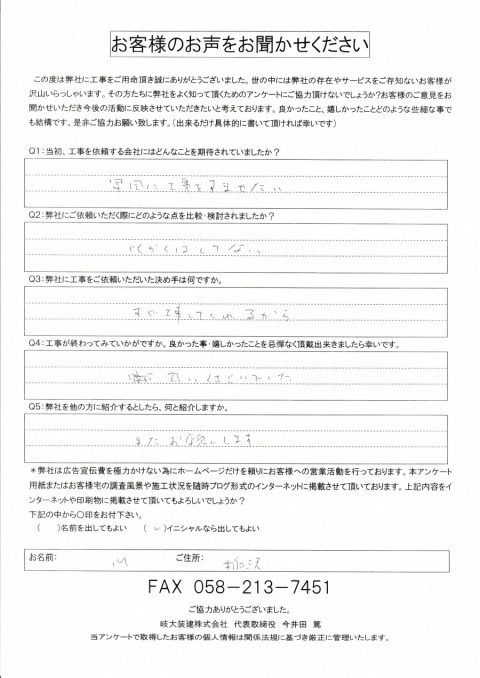 お客様のお声をお聞かせください
この度は弊社に工事をご用命頂き誠にありがとうございました。世の中には弊社の存在やサービスをご存知ないお客様が
沢山いらっしゃいます。その方たちに弊社をよく知って頂くためのアンケートにご協力頂けないでしょうか?お客様のご意見をお
聞かせいただき今後の活動に反映させていただきたいと考えております。良かったこと、嬉しかったことどのような些細な事で
も結構です。是非ご協力お願い致します。(出来るだけ具体的に書いて頂ければ幸いです)
Q1:当初、工事を依頼する会社にはどんなことを期待されていましたか?
に工事をすませたい
Q2:弊社にご依頼いただく際にどのような点を比較・検討されましたか?
ひかくはしてない
Q3:弊社に工事をご依頼いただいた決め手は何ですか。
すぐ工事してくれるから
Q4:工事が終わってみていかがですか。良かった事・嬉しかったことを忌憚なく頂戴出来きましたら幸いです。
Q5:弊社を他の方に紹介するとしたら、何と紹介しますか。
またお願いします
*弊社は広告宣伝費を極力かけない為にホームページだけを頼りにお客様への営業活動を行っております。本アンケート
用紙またはお客様宅の調査風景や施工状況を随時ブログ形式のインターネットに掲載させて頂いております。上記内容をイ
ンターネットや印刷物に掲載させて頂いてもよろしいでしょうか?
下記の中から〇印をお付下さい。
( )名前を出してもよい ( ✓ )イニシャルなら出してもよい
お名前: ご住所:
FAX 058-213-7451
ご協力ありがとうございました。
岐大装建株式会社 代表取締役 今井田 篤
当アンケートで取得したお客様の個人情報は関係法規に基づき厳正に管理いたします。